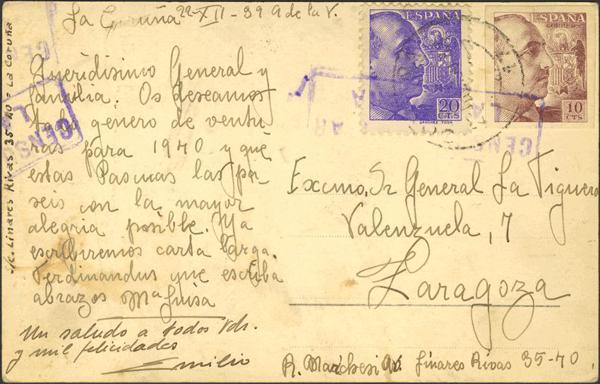 La Coruña 22-XII-39 A de la V.
Queridisimo General y
familia. Os deseamos
todo genero de ventu
ras para 1940 y que
estas Pascuas las pa
seis con la mayor
alegria posible. Ya
escribiremos carta larga.
Ferdinandus que escriba
abrazos Mª Luisa
Un saludo a todos Vds.
y mil felicidades
Emilio
ESPAÑA
CORREOS
20
CTS
ESPAÑA
CORREOS
10
CTS
Excmo. Sr General La Figuera
Valenzuela, 7
Zaragoza
R. Marchesi Av. Linares Rivas 35-70
Linares Rivas 35
La Coruña
CENS
CENS